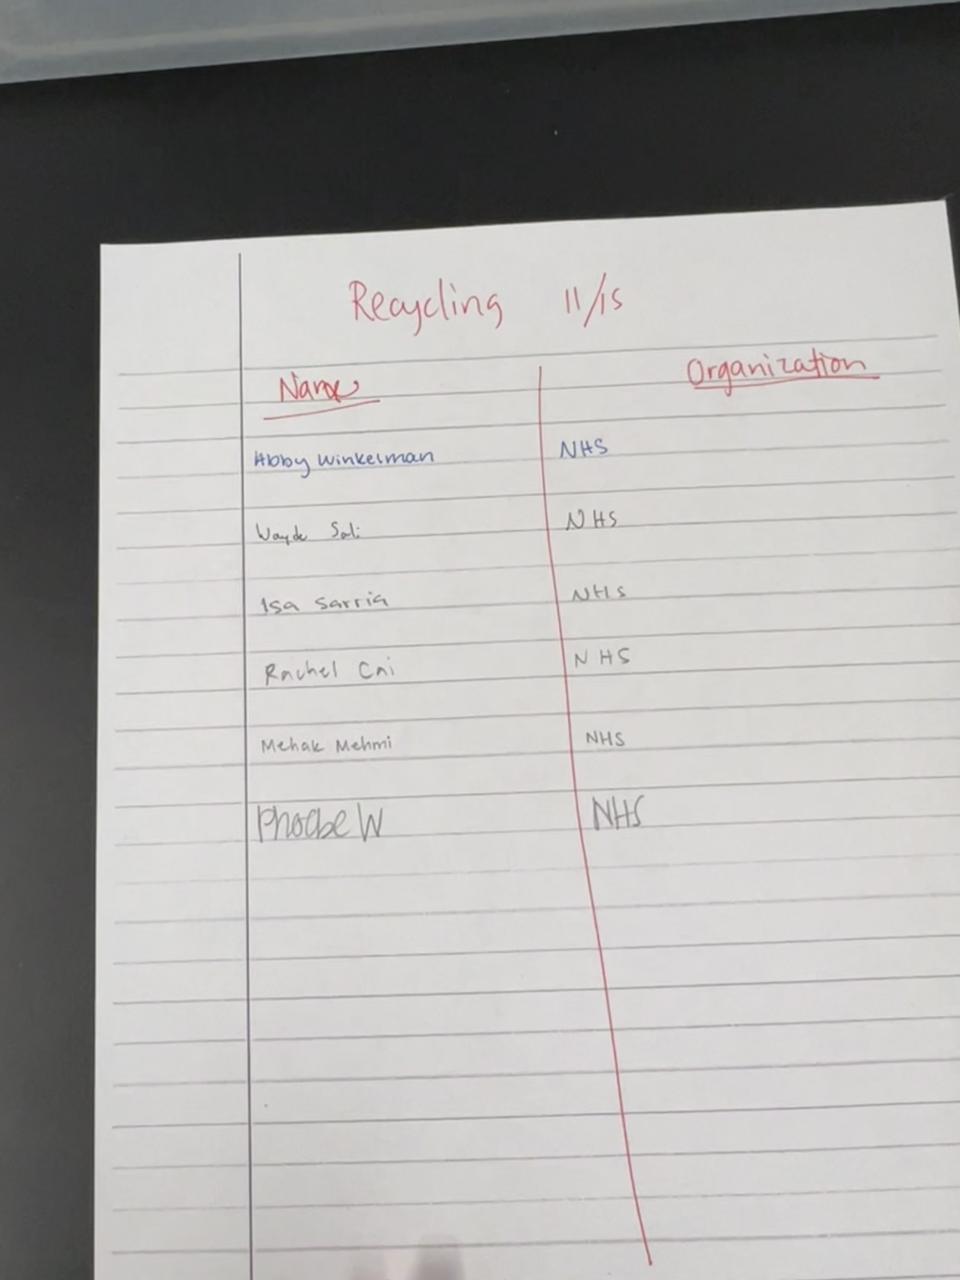 Recycling 11/15
Name Organization
Abby Winkelman NHS
Wayde Sali NHS
Isa Sarria NHS
Rachel Cai NHS
Mehak Mehmi NHS
Phoebe W NHS